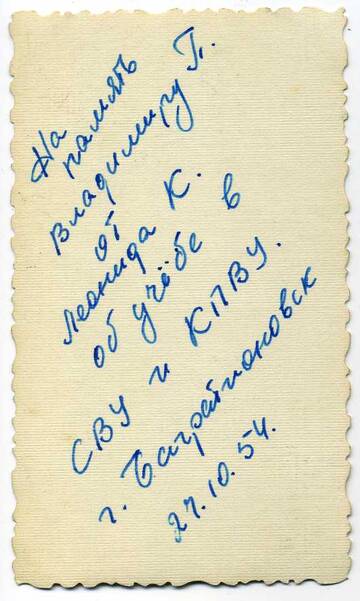 На
память
Владимиру П.
от
Леонида К.
об учёбе в
СВУ и КПВУ.
г. Багратионовск
27.10.54.